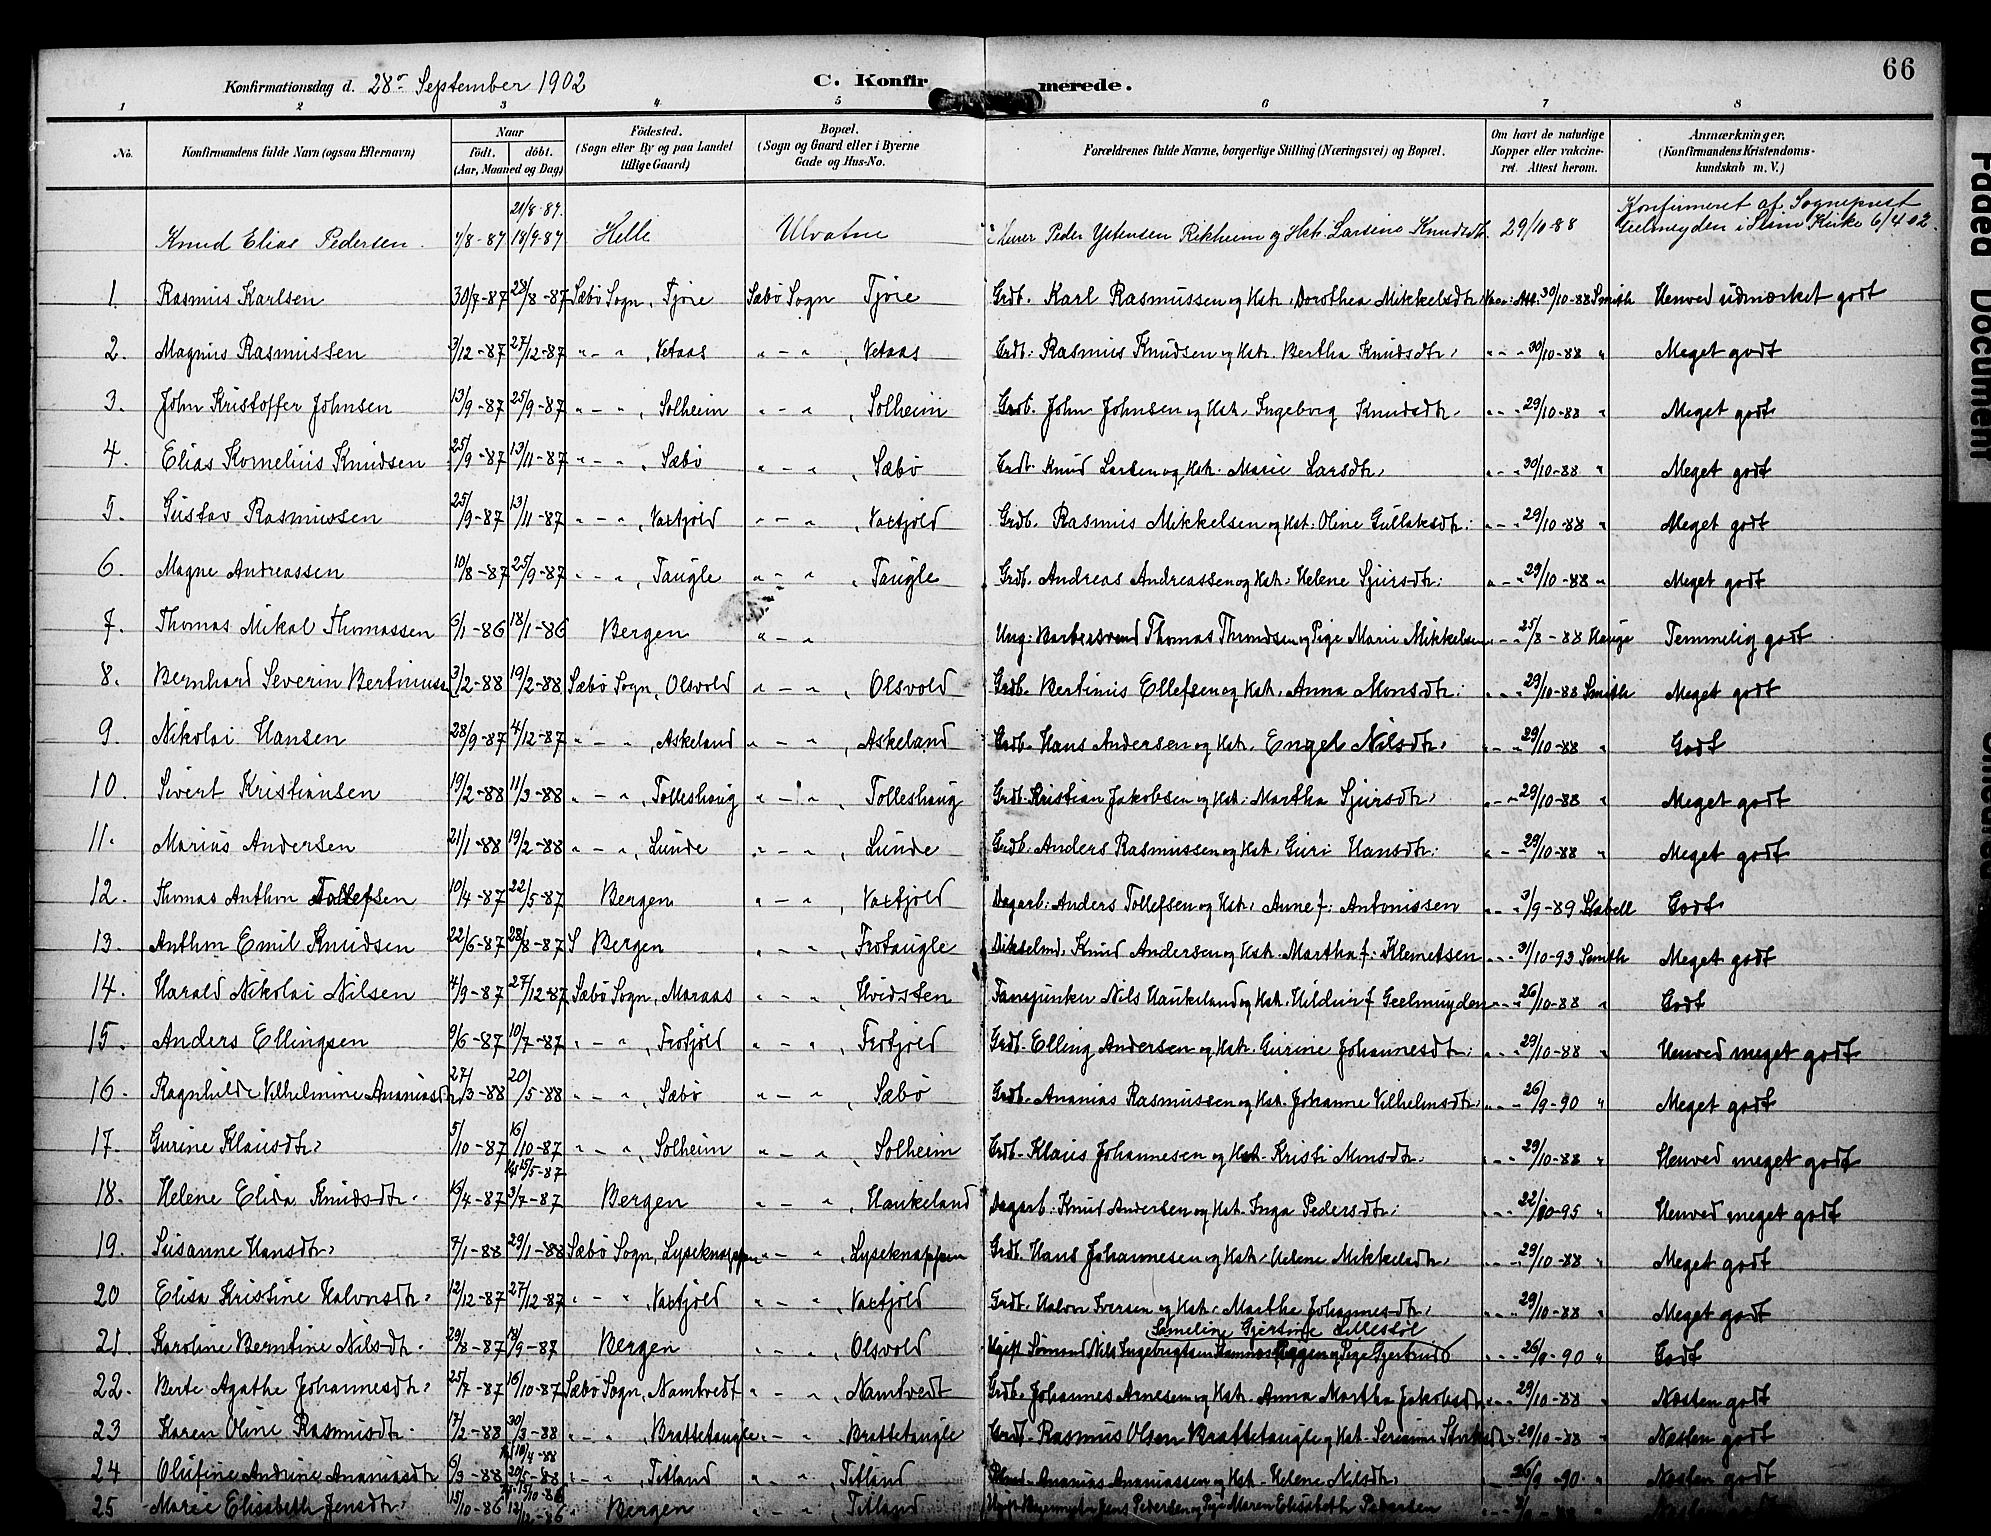 66
Konfirmationsdag d. 28de September 1902 C. Konfirmerede.
1 2 3 4 5 6 7 8
No. Konfirmandens fulde Navn (ogsaa Efternavn) Naar født. døbt. (Aar, Maaned og Dag) Födested. (Sogn eller By og paa Landet tillige Gaard) Bopæl. (Sogn og Gaard eller i Byerne Gade og Hus-No. Forældrenes fulde Navne, borgerlige Stilling (Næringsvei) og Bopæl. Om havt de naturlige Kopper eller vakcineret. Attest herom. Anmærkninger. (Konfirmandens Kristendomskundskab m. V.)
Knud Elias Pedersen 4/8-87 21/8.87. 18/9-87 Helle Ulvatne Murer Peder Ystensen Rikheim og Hst. Larsine Knudsdtr. 29/10-88 Konfirmeret af Sogneprest Geelmuyden i Slim Kirke 6/4 02.
1. Rasmus Karlsen 30/7-87 28/8-87 Sæbø Sogn, Tjore Sæbø Sogn Tjore Grdb. Karl Rasmussen og Hst. Dorothea Mikkelsdtr. Vacc. Att. 30/10-88 Smith Henved udmærket godt
2. Magnus Rasmussen 3/12-87 27/12-87 " - " , Vetaas " - " , Vetaas Grdb. Rasmus Knudsen og Hst. Bertha Knudsdtr. " - " 30/10-88 " Meget godt
3. John Kristoffer Johnsen 13/9-87 25/9-87 " - " , Solheim " - " , Solheim Grdb. John Johnsen og Hst. Ingeborg Knudsdtr. " - " 29/10-88 " Meget godt
4. Elias Kornelius Knudsen 25/9-87 13/11-87 " - " , Sæbø " - " , Sæbø Grdb. Knud Larsen og Hst. Marie Larsdtr. " - " 30/10-88 " Meget godt
5. Gustav Rasmussen 25/9-87 13/11-87 " - " , Vaxtjold " - " , Vaxtjold Grdb. Rasmus Mikkelsen og Hst. Oline Gullaksdtr. " - " 29/10-88 " Meget godt
6. Magne Andreassen 10/8-87 25/9-87 " - " , Taugle " - " , Taugle Grdb. Andreas Andreassen og Hst. Helene Sjursdtr. " - " 29/10-88 " Meget godt
7. Thomas Mikal Thomassen 6/1-86 18/1-86 Bergen " - " Ung. Barbersvend Thomas Throndsen og Pige Mari Mikkelsen " - " 25/8-88 Hauge Temmelig godt
8. Bernhard Severin Bertinusen 3/2-88 19/2-88 Sæbø Sogn, Olsvold " - " , Olsvold Grdb. Bertinus Ellefsen og Hst. Anna Monsdtr. " - " 29/10-88 Smith Meget godt
9. Nikolai Hansen 28/9-87 4/12-87 " - " , Askeland " - " , Askeland Grdb. Hans Andersen og Hst. Engel Nilsdtr. " - " 29/10-88 " Godt
10. Sivert Kristiansen 19/2-88 11/3-88 " - " , Tolleshaug " - " , Tolleshaug Grdb. Kristian Jakobsen og Hst. Martha Sjursdtr. " - " 29/10-88 " Meget godt
11. Marius Andersen 21/1-88 19/2-88 " - " , Lunde " - " , Lunde Grdb. Anders Rasmussen og Hst. Guri Hansdtr. " - " 29/10-88 " Meget godt
12. Thomas Anthon Tollefsen 10/4-87 22/5-87 Bergen " - " , Vaxtjold Dagarb. Anders Tollefsen og Hst. Anne f. Antonissen " - " 3/9-89 Stabell Godt
13. Anthon Emil Knudsen 22/6-87 28/8-87 S Bergen " - " , Frotaugle Knud Andersen og Hst. Martha f. Klemetsen " - " 31/10-93 Smith Meget godt
14. Harald Nikolai Nilsen 4/9-87 27/12-87 Sæbø Sogn, Maraas " - " , Hvidsten Fanejunker Nils Haukeland og Hst. Hildur f Geelmuyden " - " 26/10-88 " Godt
15. Anders Ellingsen 9/6-87 10/7-87 " - " , Frotjold " - " , Frotjold Grdb. Elling Andersen og Hst. Gurine Johannesdtr. " - " 29/10-88 " Henved meget godt
16. Ragnhilde Vilhelmine Ananiasdtr 27/3-88 20/5-88 " - " , Sæbø " - " , Sæbø Grdb. Ananias Rasmussen og Hst. Johanne Vilhelmsdtr. " - " 26/9-90 " Meget godt
17. Gurine Klausdtr. 5/10-87 16/10-87 " - " , Solheim " - " , Solheim Grdb. Klaus Johannesen og Hst. Kristi Monsdtr. " - " 29/10-88 " Henved meget godt
18. Helene Elida Knudsdtr. 16/4-87 15/5-87 3/7-87 Bergen " - " , Haukeland Dagarb. Knud Andersen og Hst. Inga Pedersdtr. " - " 22/10-95 " Henved meget godt
19. Susanne Hansdtr. 7/1-88 29/1-88 Sæbø Sogn, Lyseknappen " - " , Lyseknappen Grdb. Hans Johannesen og Hst. Helene Mikkelsdtr. " - " 29/10-88 " Meget godt
20 Elisa Kristine Halvorsdtr. 12/12-87 27/12-87 " - " , Vaxtjold " - " , Vaxtjold Grdb. Halvor Iversen og Hst. Marthe Johannesdtr. " - " 29/10-88 " Meget godt
21. Karoline Berntine Nilsdtr. 29/8-87 18/9-87 Bergen " - " , Olsvold Ugift Sømand Nils Ingebrigtsen og Pige Gjertrud Gjertine Lillestøl " - " 26/9-90 " Godt
22. Berte Agathe Johannesdtr. 25/7-87 16/10-87 Sæbø Sogn, Namtvedt " - " , Namtvedt Grdb. Johannes Arnesen og Hst. Anna Martha Jakobsdtr " - " 29/10-88 " Næsten godt
23 Karen Oline Rasmusdtr. 17/2-88 30/3-88 " - " , Brattetaugle " - " , Brattetaugle Grdb. Rasmus Olsen Brattetaugle og Hst. " - " 29/10-88 " Næsten godt
24 Olufine Andrine Ananiasdtr 6/3-88 10/4-88 20/5-88 " - " , Titland " - " , Titland Ananias Ananiassen og Hst. Helene Nilsdtr. " - " 26/9-90 " Næsten godt
25 Marie Elisabeth Jensdtr. 15/10-86 Bergen " - " , Titland Jens Pedersen og Pige Maren Elisabeth Pedersen
Faded Document